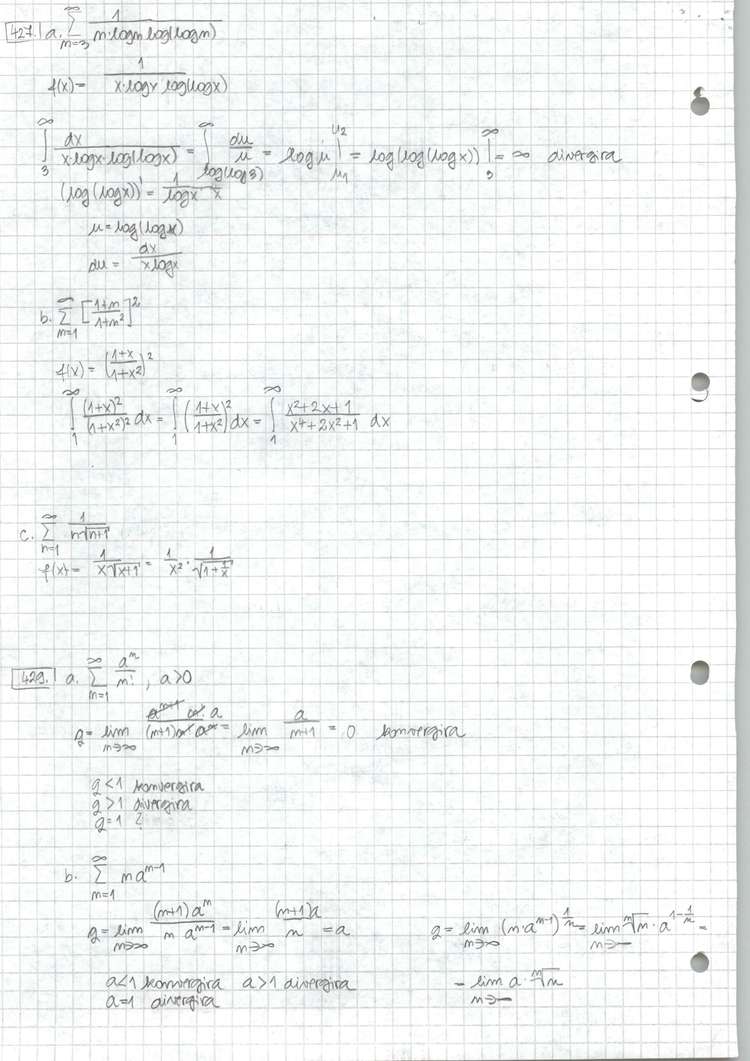 427. a. ∑_{n=3}^{∞} 1/(n·logn log(logn))
f(x) = 1/(x·logx log(logx))
∫_3^∞ dx/(x·logx·log(logx)) = ∫_{log(log3)}^∞ du/u = log u |_{u1}^{u2} = log(log(logx)) |_3^∞ = ∞ divergira
(log(logx))' = 1/(logx x)
u = log(logx)
du = dx/(x logx)
b. ∑_{n=1}^{∞} [(1+n)/(1+n²)]²
f(x) = ((1+x)/(1+x²))²
∫_1^∞ (1+x)²/(1+x²)² dx = ∫_1^∞ ((1+x)/(1+x²))² dx = ∫_1^∞ (x²+2x+1)/(x⁴+2x²+1) dx
c. ∑_{n=1}^{∞} 1/(n√(n+1))
f(x) = 1/(x√(x+1)) = 1/x² · 1/√(1+1/x)
429. a. ∑_{n=1}^{∞} aⁿ/n! , a>0
q = lim_{n→∞} (aⁿ⁺¹ n! a)/((n+1)n! aⁿ) = lim_{n→∞} a/(n+1) = 0 konvergira
q<1 konvergira
q>1 divergira
q=1 ?
b. ∑_{n=1}^{∞} n aⁿ⁻¹
q = lim_{n→∞} ((n+1)aⁿ)/(n aⁿ⁻¹) = lim_{n→∞} ((n+1)a)/n = a q = lim_{n→∞} (n·aⁿ⁻¹)^{1/n} = lim_{n→∞} ⁿ√n · a^{1-1/n} =
a<1 konvergira a>1 divergira = lim_{n→∞} a ⁿ√n
a=1 divergira